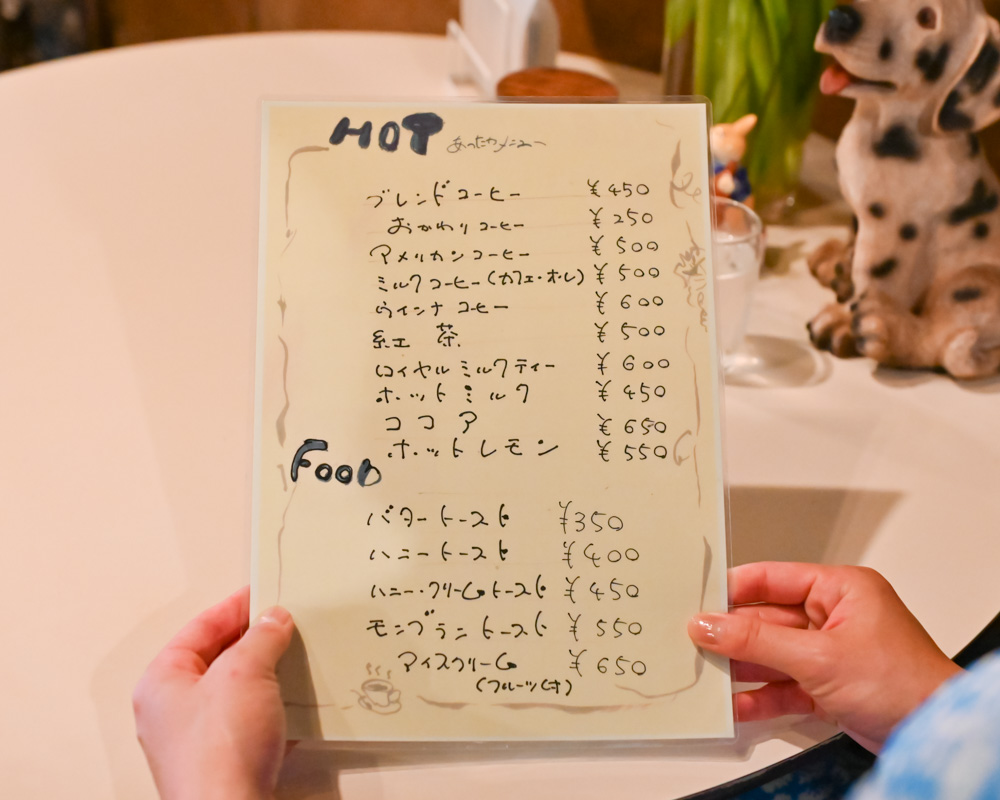 HOT あったかメニュー
ブレンドコーヒー ¥450
おかわりコーヒー ¥250
アメリカンコーヒー ¥500
ミルクコーヒー(カフェ・オ・レ) ¥500
ウインナコーヒー ¥600
紅茶 ¥500
ロイヤルミルクティー ¥600
ホットミルク ¥450
ココア ¥650
ホットレモン ¥550
FOOD
バタートースト ¥350
ハニートースト ¥400
ハニー・クリームトースト ¥450
モンブラントースト ¥550
アイスクリーム ¥650
(フルーツ付)